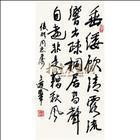 垂緌飲清露流
響出疏桐居高聲
自遠非是藉秋風